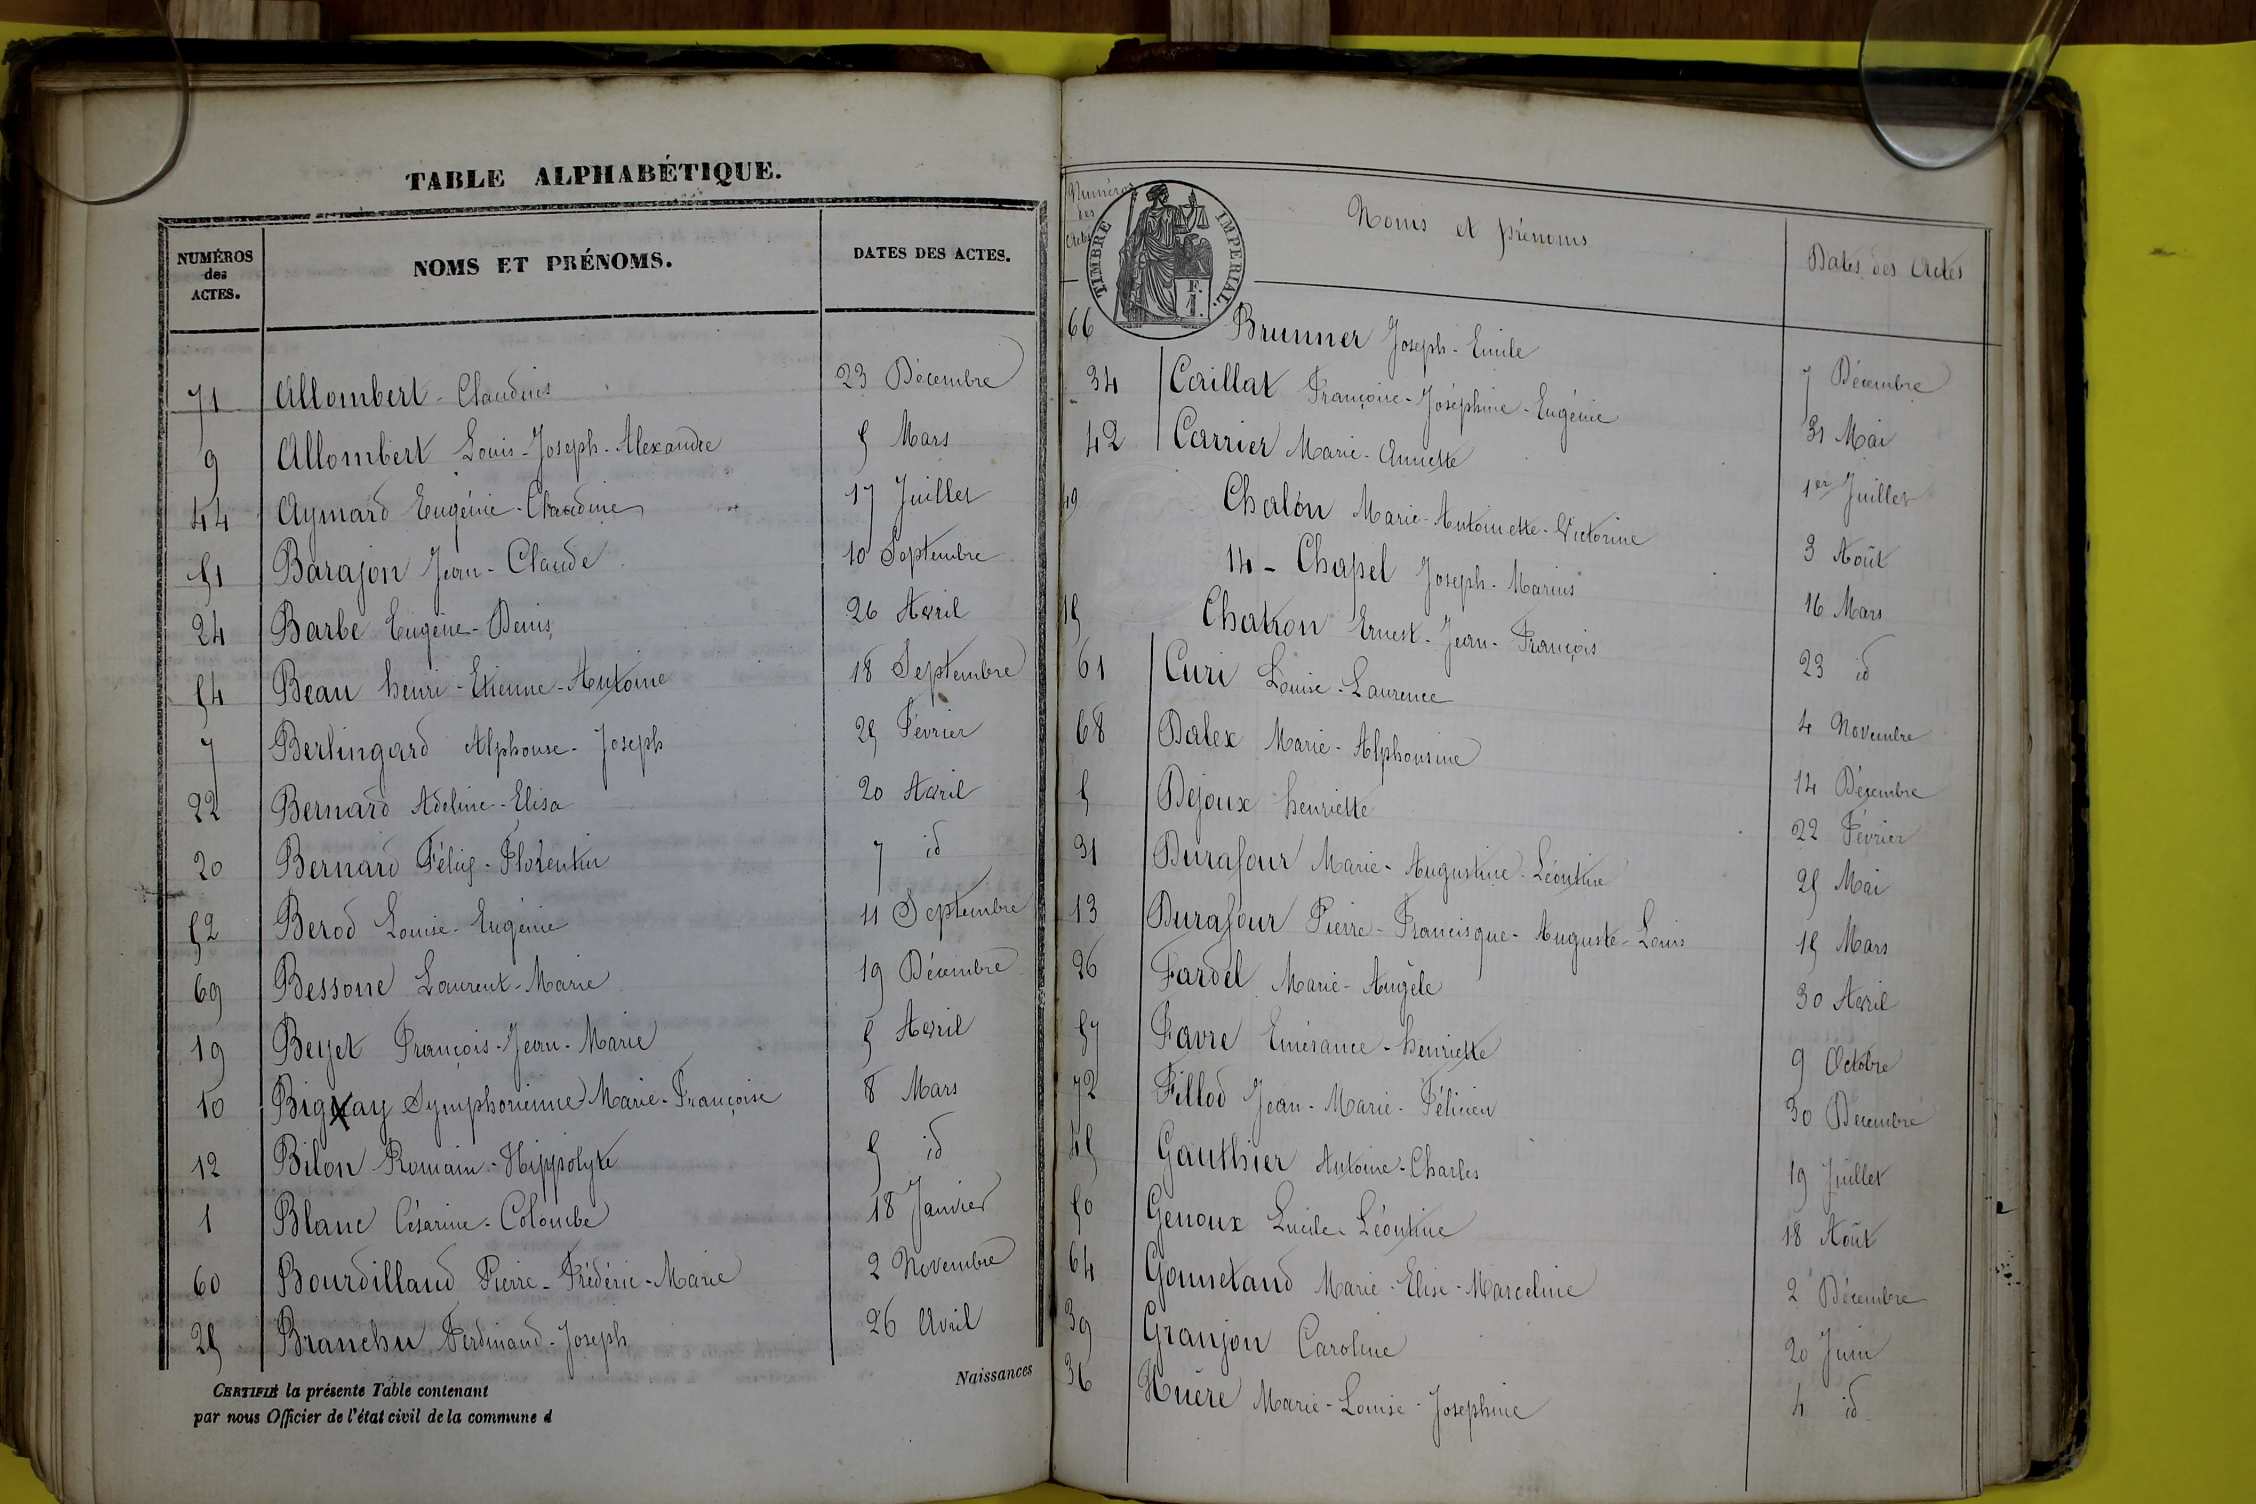 TABLE ALPHABÉTIQUE.
NUMÉROS des ACTES. NOMS ET PRÉNOMS. DATES DES ACTES.
71 Allombert - Claudius 23 Décembre
9 Allombert Louis - Joseph - Alexandre 5 Mars
44 Aymard Eugénie - Claudine 17 Juillet
51 Barajon Jean - Claude 10 Septembre
24 Barbe Eugène - Denis 26 Avril
54 Beau henri - Etienne - Antoine 18 Septembre
7 Berlingard Alphonse - Joseph 25 Février
22 Bernard Adeline - Elisa 20 Avril
20 Bernard Félix - Florentin 7 id
52 Berod Louise - Eugénie 11 Septembre
69 Bessone Laurent - Marie 19 Décembre
19 Beyet François - Jean - Marie 5 Avril
10 Bigxay Symphorienne Marie - Françoise 8 Mars
12 Bilon Romain - Hippolyte 5 id
1 Blanc Césarine - Colombe 18 Janvier
60 Bourdilland Pierre - Frédéric - Marie 2 Novembre
25 Branchu Ferdinand - Joseph 26 Avril
CERTIFIÉ la présente Table contenant Naissances
par nous Officier de l'état civil de la commune d
Numéros des Actes Noms et prénoms Dates des Actes
TIMBRE IMPERIAL.
F. 1.
66 Brunner Joseph - Emile 7 Décembre
34 Caillat Françoise - Joséphine - Eugénie 31 Mai
42 Carrier Marie - Annette 1er Juillet
49 Chalon Marie - Antoinette - Victorine 3 Août
14 - Chapel Joseph - Marius 16 Mars
15 Chatron Ernest - Jean - François 23 id
61 Curi Louise - Laurence 4 Novembre
68 Dalex Marie - Alphonsine 14 Décembre
5 Dejoux henriette 22 Février
31 Durafour Marie - Augustine - Léontine 25 Mai
13 Durafour Pierre - Francisque - Auguste - Louis 15 Mars
26 Fardel Marie - Angèle 30 Avril
57 Favre Emérance - henriette 9 Octobre
72 Fillod Jean - Marie - Félicien 30 Décembre
45 Gauthier Antoine - Charles 19 Juillet
50 Genoux Lucile - Léontine 18 Août
64 Gonnetand Marie - Elise - Marceline 2 Décembre
39 Granjon Caroline 20 Juin
36 Huère Marie - Louise - Josephine 4 id